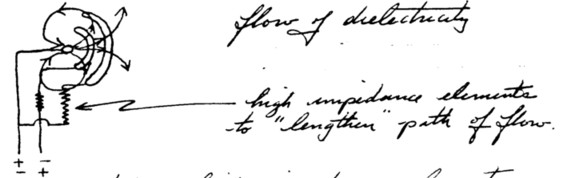 flow of dielectricity
high impedance elements
to "lengthen" path of flow.
+ -
- +